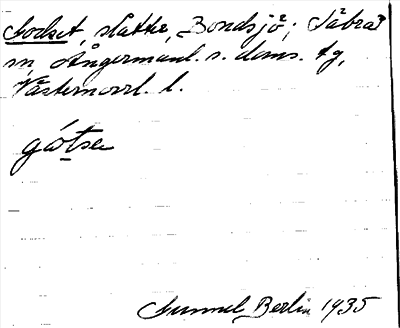 Godset, slåtter, Bondsjö; Säbrå
sn, Ångermanl. s. doms. tg,
Västernorrl. l.
gòtse
Gunnel Berlin 1935